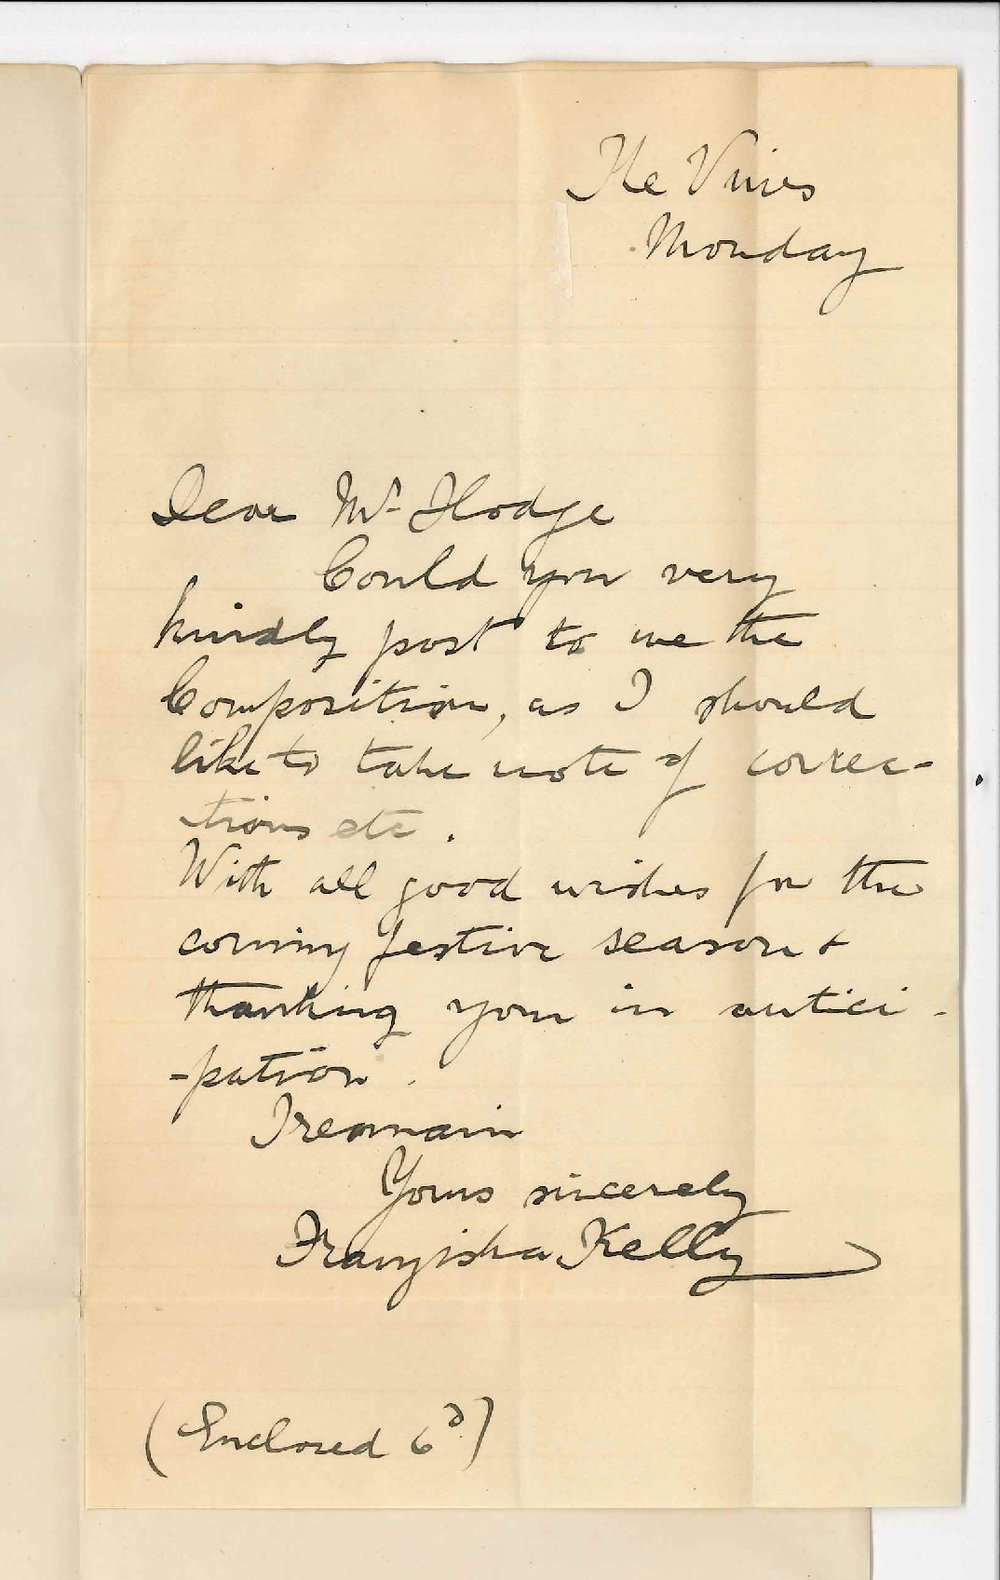 The Vines
Monday
Dear Mr. Hodge
Could you very
kindly post to me the
Composition, as I should
like to take note of correc-
tions etc.
With all good wishes for the
coming festive season &
thanking you in antici-
-pation.
I remain
Yours sincerely
Franziska Kelly
(Enclosed 6d)